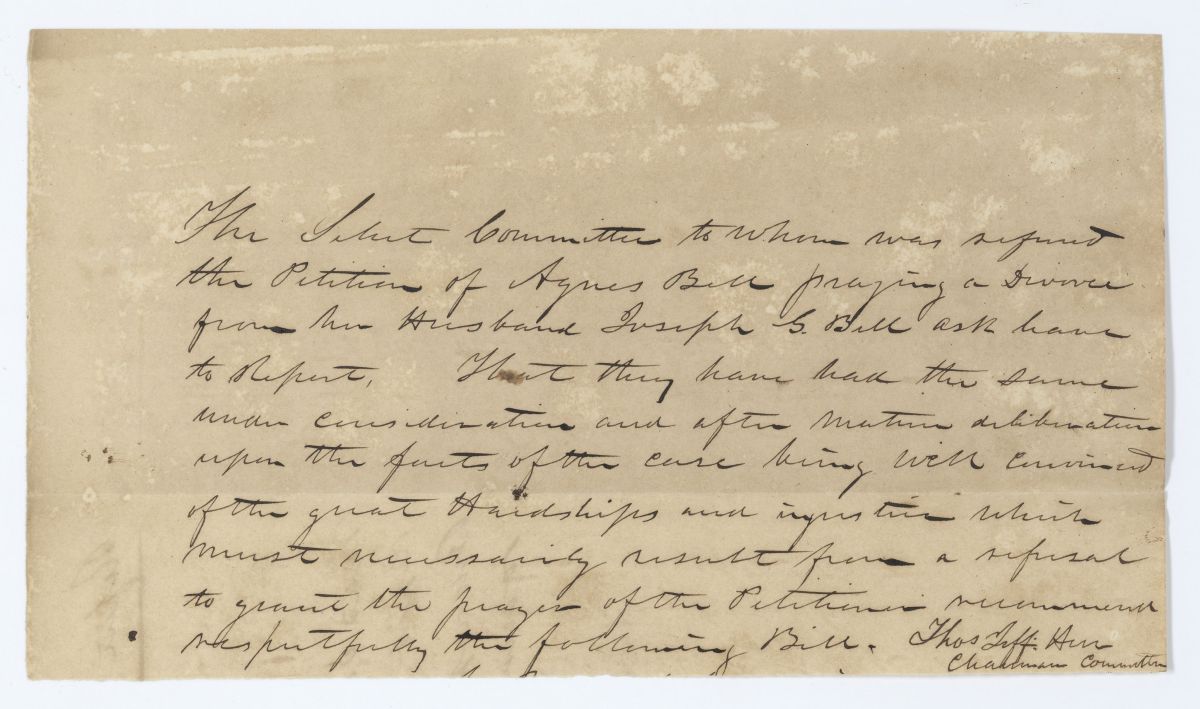 The Select Committee to whom was refered
the Petition of Agnes Bell praying a Divorce
from her Husband Joseph G. Bell ask leave
to Report, That they have had the same
under consideration and after mature deliberation
upon the facts of the case being well convinced
of the great Hardships and injustice which
must necessarily result from a refusal
to grant the prayer of the Petitioner recommend
respectfully the following Bill. Thos Jeff:
Chairman Committee